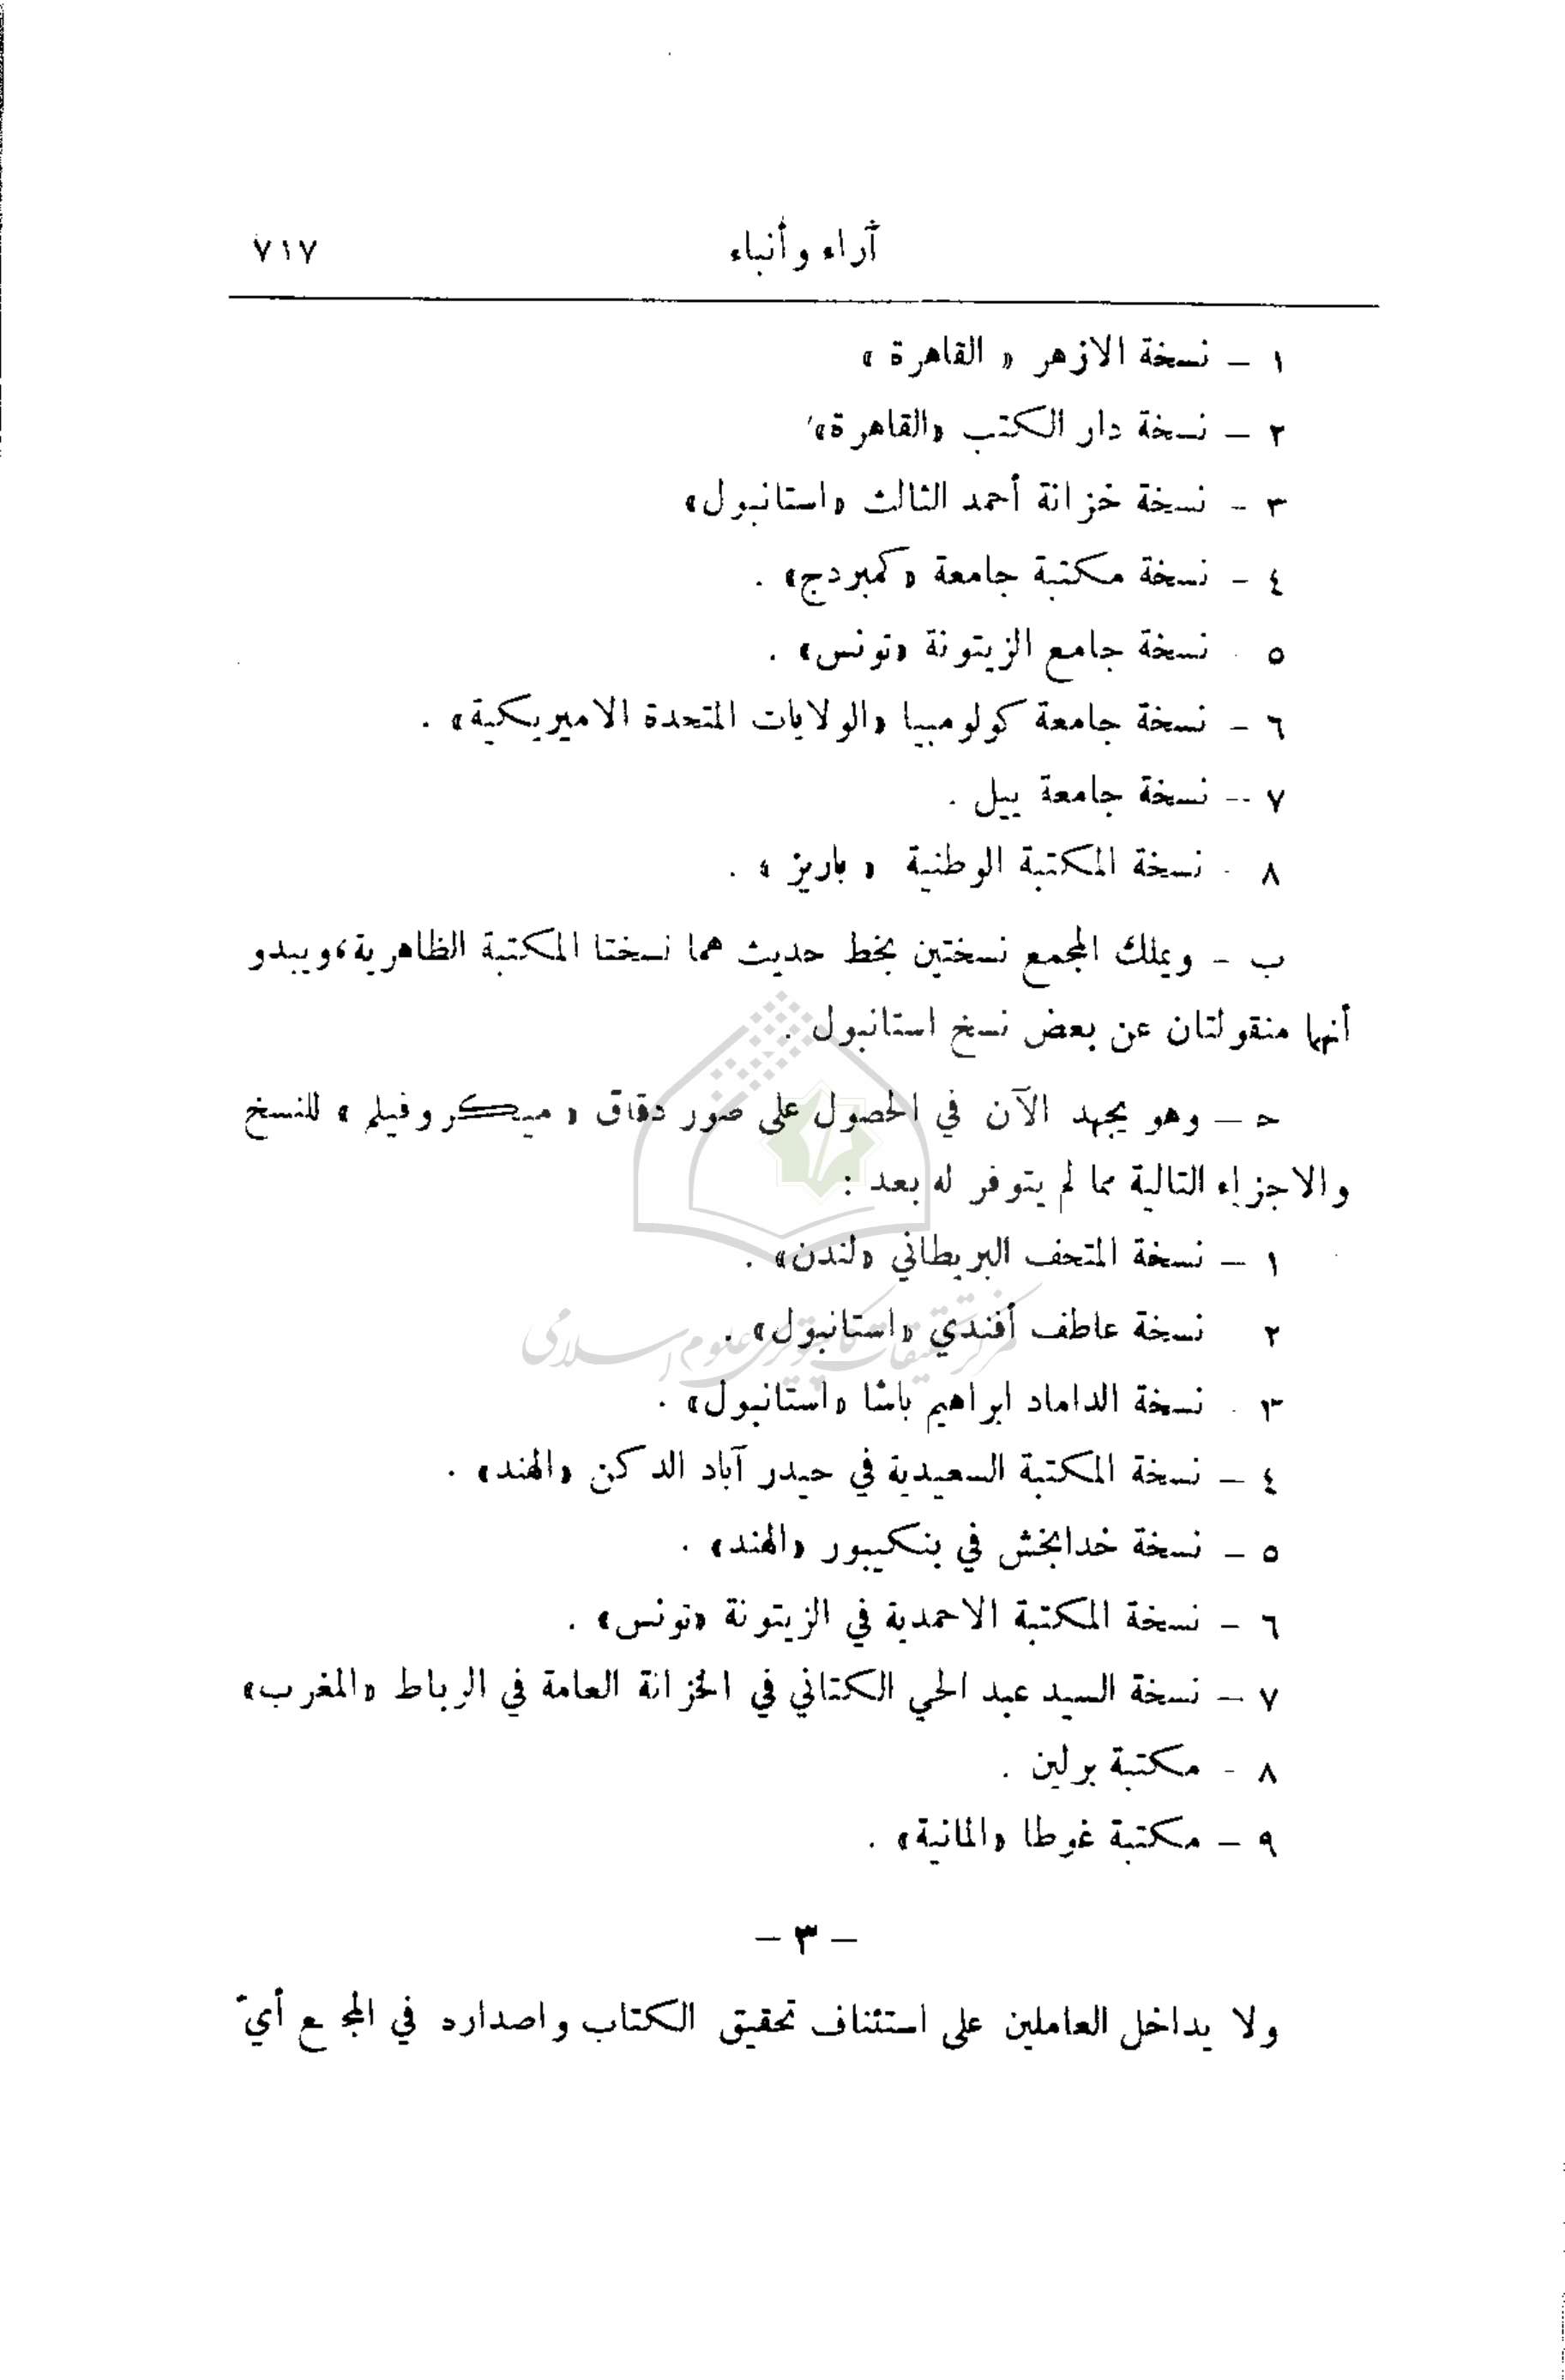 آراء وأنباء ٧١٧
١ – نسخة الازهر « القاهرة »
٢ – نسخة دار الكتب «القاهرة»
٣ – نسخة خزانة أحمد الثالث «استانبول»
٤ – نسخة مكتبة جامعة «كمبردج» .
٥ – نسخة جامع الزيتونة «تونس» .
٦ – نسخة جامعة كولومبيا «الولايات المتحدة الاميريكية» .
٧ – نسخة جامعة ييل .
٨ – نسخة المكتبة الوطنية « باريز » .
ب – ويملك المجمع نسختين بخط حديث هما نسختا المكتبة الظاهرية، ويبدو
أنهما منقولتان عن بعض نسخ استانبول .
حـ – وهو يجهد الآن في الحصول على صور دقاق « ميكروفيلم » للنسخ
والاجزاء التالية مما لم يتوفر له بعد :
١ – نسخة المتحف البريطاني «لندن» .
٢ نسخة عاطف أفندي «استانبول» .
٣ – نسخة الداماد ابراهيم باشا «استانبول» .
٤ – نسخة المكتبة السعيدية في حيدر آباد الدكن «الهند» .
٥ – نسخة خدابخش في بنكيبور «الهند» .
٦ – نسخة المكتبة الاحمدية في الزيتونة «تونس» .
٧ – نسخة السيد عبد الحي الكتاني في الخزانة العامة في الرباط «المغرب»
٨ – مكتبة برلين .
٩ – مكتبة غوطا «المانية» .
– ٣ –
ولا يداخل العاملين على استئناف تحقيق الكتاب واصداره في المجمع أيّ
مركز تحقيقات كامپيوتري علوم اسلامى